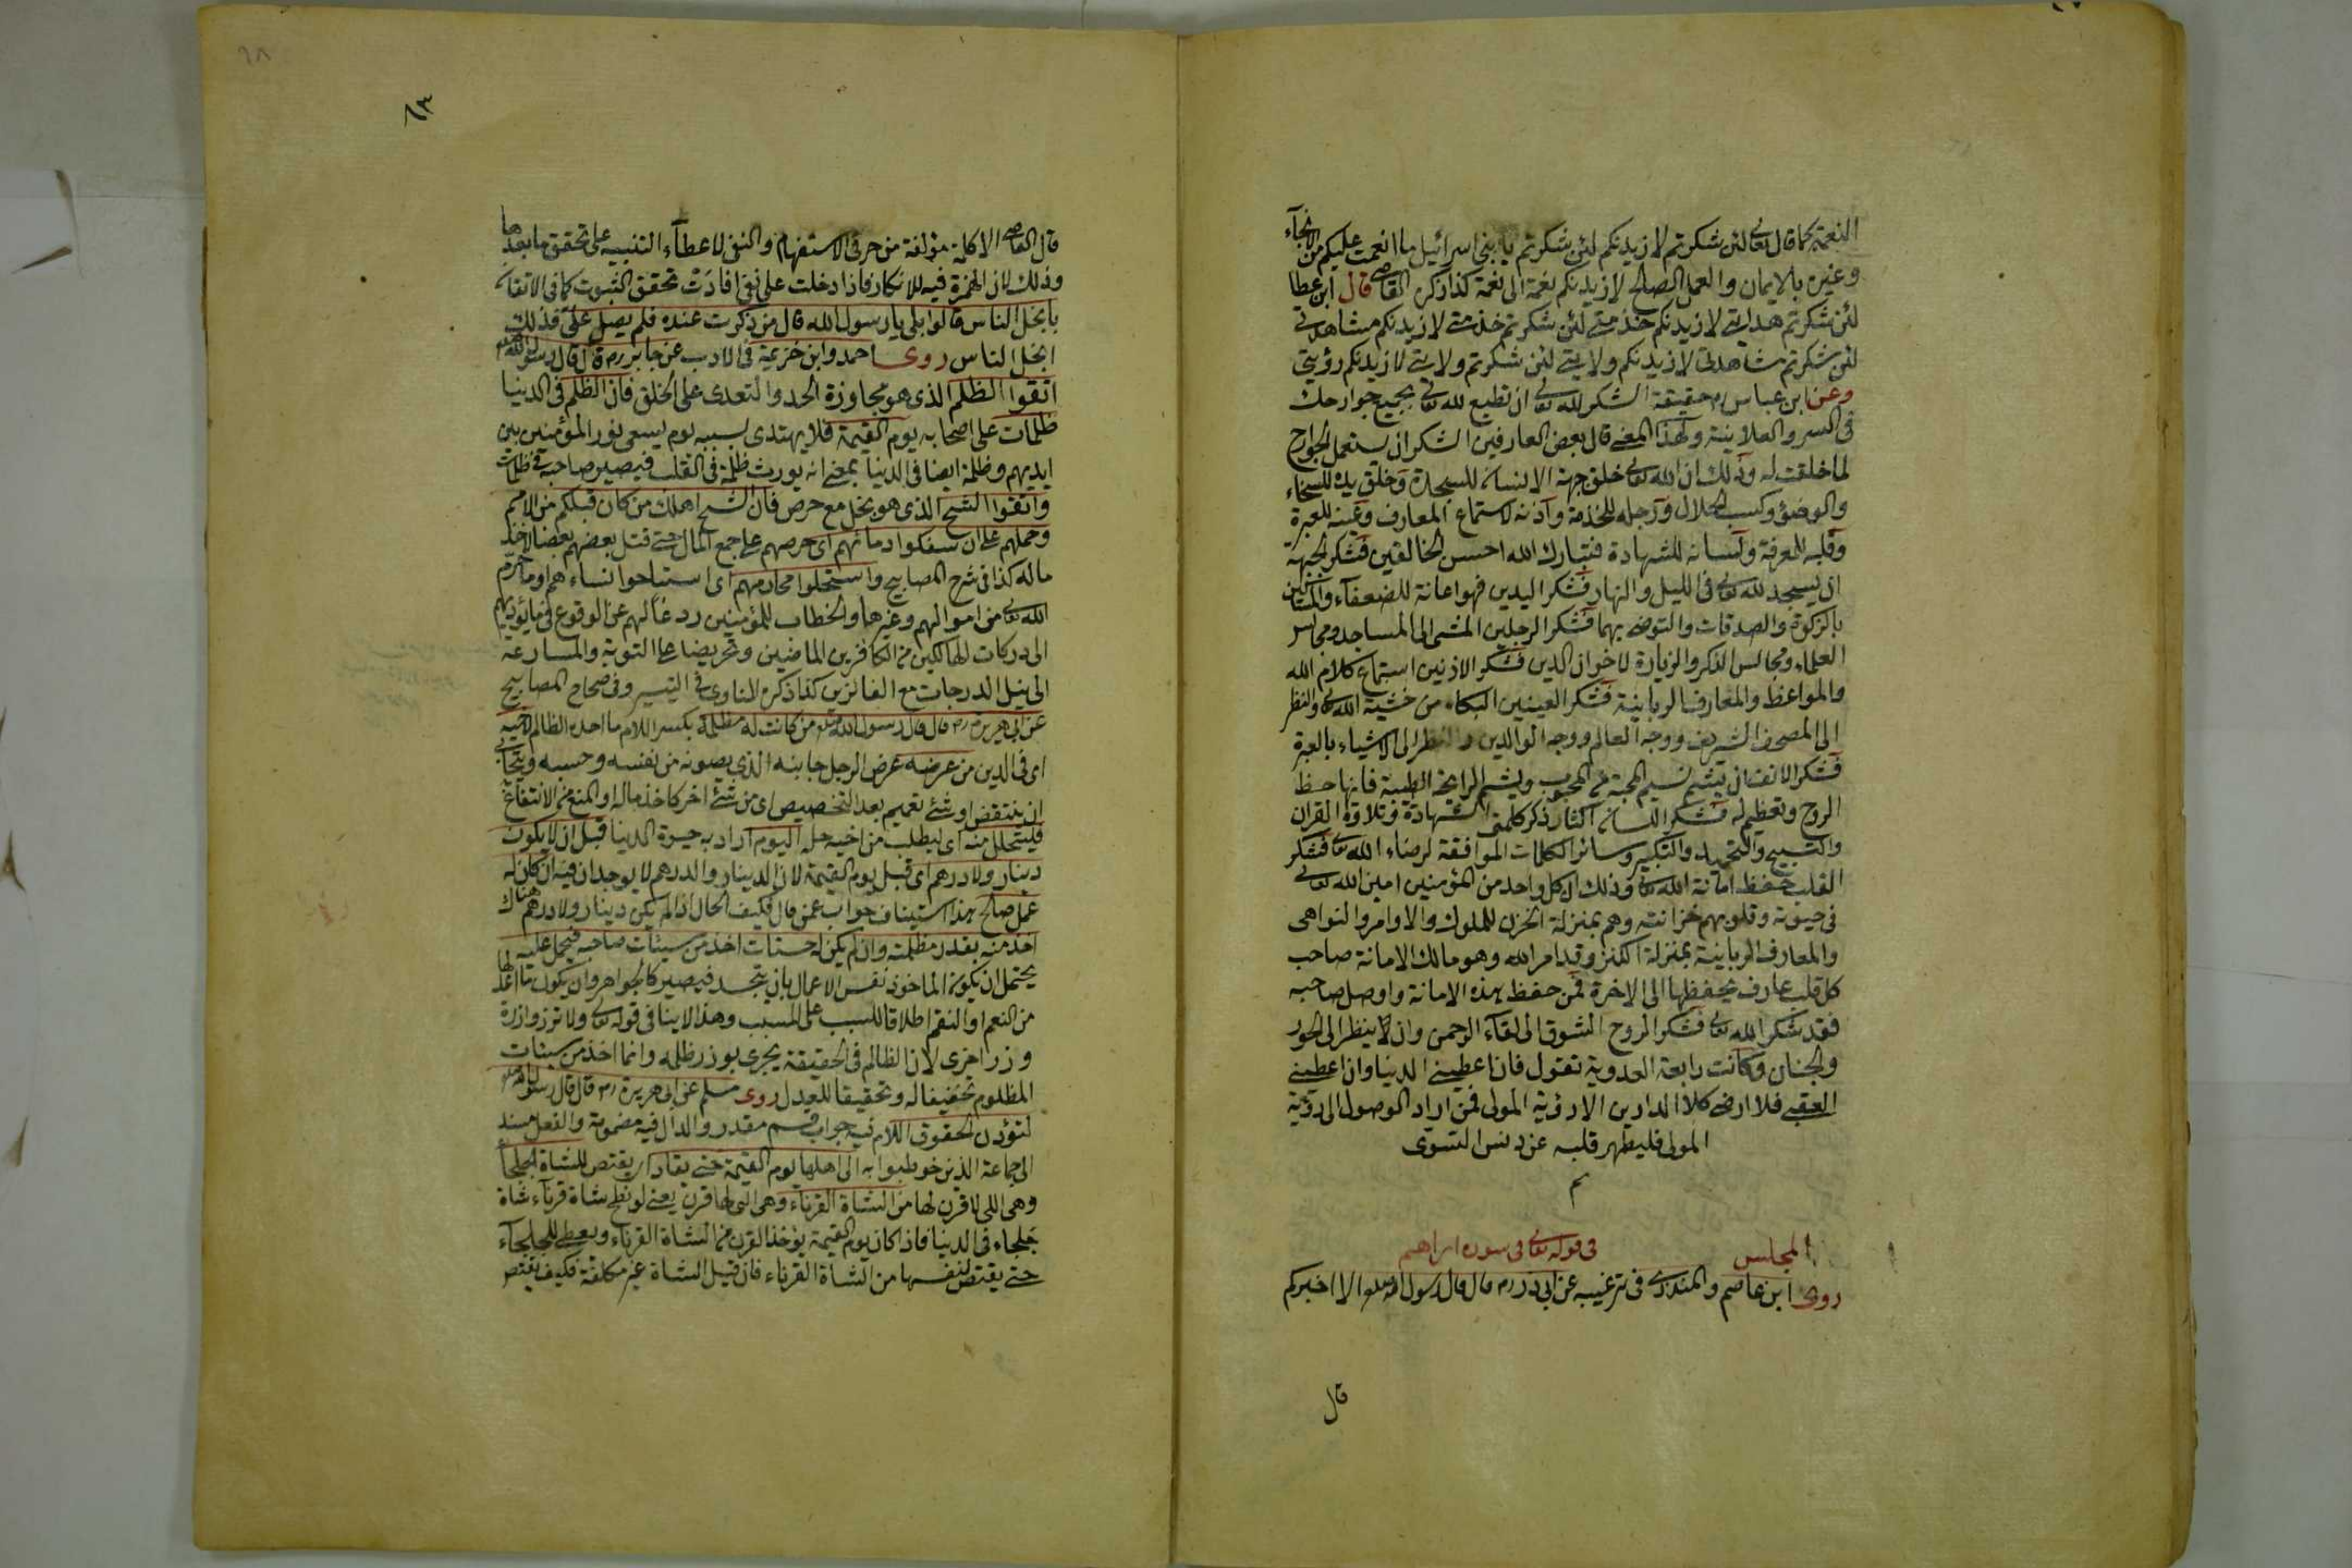 النعمة كما قال تعالى لئن شكرتم لازيدنكم لئن شكرتم يا بنى اسرائيل ما انعمت عليكم من الانجاء
وغيره بالايمان والعمل الصالح لازيدنكم نعمة الى نعمة كذا ذكره القاضى قال ابن عطا
لئن شكرتم هدايتى لازيدنكم خدمتى لئن شكرتم خدمتى لازيدنكم مشاهدتى
لئن شكرتم مشاهدتى لازيدنكم ولايتى لئن شكرتم ولايتى لازيدنكم رؤيتى
وعن ابن عباس رم حقيقة الشكر لله تعالى ان تطيع لله تعالى بجميع جوارحك
فى السر والعلانية ولهذا المعنى قال بعض العارفين الشكر ان يستعمل الجوارح
لما خلقت له وذلك ان الله تعالى خلق جبهة الانسان للسجدة وخلق يده للسخاء
والوضؤ وكسب الحلال ورجله للخدمة وآذنه لاستماع المعارف وعينه للعبرة
وقلبه للمعرفة ولسانه للشهادة فتبارك الله احسن الخالقين فشكر الجبهة
ان يسجد لله تعالى فى الليل والنهار فشكر اليدين فهو اعانة للضعفآء والمساكين
بالزكوة والصدقات والتوضى بهما فشكر الرجلين المشى الى المساجد ومجالس
العلماء ومجالس الذكر والزيارة لاخوان الدين فشكر الاذنين استماع كلام الله
والمواعظ والمعارف الربانية فشكر العينين البكاء من خشية الله تعالى والنظر
الى المصحف الشريف ووجه العالم ووجه الوالدين والنظر الى الاشياء بالعبرة
فشكر الانف ان يشم نسيم المحبة عن المحبوب ويشم الرايحة الطيبة فانها حظ
الروح وتعظيم له فشكر اللسان اكثار ذكر كلمتى الشهادة وتلاوة القران
والتسبيح والتحميد والتكبير وسائر الكلمات الموافقة لرضاء الله تعالى فشكر
القلب حفظ امانة الله تعالى وذلك ان كل واحد من المؤمنين امين الله تعالى
فى حيوته وقلوبهم خزانته وهم بمنزلة الخزن للملوك والاوامر والنواهى
والمعارف الربانية بمنزلة الكنز وقد امر الله وهو مالك الامانة صاحب
كل قلب عارف يحفظها الى الاخرة فمن حفظ هذه الامانة واوصل صاحبه
فقد شكر الله تعالى فشكر الروح الشوق الى لقآء الرحمن وان لا ينظر الى الحور
والجنان وكانت رابعة العدوية تقول فان اعطيتنى الدنيا وان اعطيتنى
العقبى فلا ارضى كلا الدارين الا رؤية المولى فمن اراد الوصول الى رؤية
المولى فليطهر قلبه عن دنس السوى
م
المجلس فى قوله تعالى فى سورة ابراهيم
روى ابن عاصم والمنذرى فى ترغيبه عن ابى ذر رم قال قال رسول الله صلعم الا اخبركم
قال
٨٣
قال القاضى الا كلمة مؤلفة من حرفى الاستفهام والنفى لاعطآء التنبيه على تحقق ما بعدها
وذلك لان الهمزة فيه للانكار فاذا دخلت على نفى افادَتْ تحقق الثبوت كما فى الاتقان
بابخل الناس قالوا بلى يا رسول الله قال من ذكرت عنده فلم يصل علىّ فذلك
ابخل الناس روى احمد وابن خزيمة فى الادب عن جابر رم قال قال رسول الله صلعم
اتقوا الظلم الذى هو مجاوزة الحد والتعدى على الخلق فان الظلم فى الدنيا
ظلمات على اصحابه يوم القيمة فلا يهتدى بسببه يوم يسعى نور المؤمنين بين
ايديهم وظلمة ايضا فى الدنيا بمعنى انه يورث ظلمة فى القلب فيصير صاحبه فى ظلمات
واتقوا الشح الذى هو بخل مع حرص فان الشح اهلك من كان قبلكم من الامم
وحملهم على ان سفكوا دمائهم اى حرصهم على جمع المال حتى قتل بعضهم بعضا لاخذ
ماله كذا فى شرح المصابيح واستحلوا محارمهم اى استباحوا نساءهم او ما حرم
الله تعالى من اموالهم وغيرها والخطاب للمؤمنين ردعًا لهم عن الوقوع فيما يؤديهم
الى دركات الهالكين من الكافرين الماضين وتحريضا على التوبة والمسارعة
الى نيل الدرجات مع الفائزين كذا ذكره المناوى فى التيسير وفى صحاح المصابيح
عن ابى هريرة رم قال قال رسول الله صلعم من كانت له مظلمة بكسر اللام ما اخذه الظالم لاخيه
اى فى الدين من عرضه عرض الرجل جانبه الذى يصونه من نفسه وحسبه ويتحامى
ان ينتقض او شئ تعميم بعد التخصيص اى من شئ اخر كاخذ ماله او المنع من الانتفاع
فليتحلل منه اى ليطلب من اخيه حله اليوم اراد به حيوة الدنيا قبل ان لا يكون
دينار ولا درهم اى قبل يوم القيمة لان الدينار والدرهم لا يوجدان فيه ان كان له
عمل صالح هذا استيناف جواب عمن قال فكيف الحال اذا لم يكن دينار ولا درهم هناك
اخذ منه بقدر مظلمته وان لم يكن له حسنات اخذ من سيئات صاحبه فيحمل عليه
يحتمل ان يكون الماخوذ نفس الاعمال بان يتجسد فيصير كالجواهر وان يكون ما اعد لها
من النعم او النقم اطلاقا للسبب على المسبب وهذا لا ينافى قوله تعالى ولا تزر وازرة
وزر اخرى لان الظالم فى الحقيقة يجزى بوزر ظلمه وانما اخذ من سيئات
المظلوم تخفيفا له وتحقيقا للعدل روى مسلم عن ابى هريرة رم قال قال رسول الله صلعم
لتؤدن الحقوق اللام فيه جواب قسم مقدر والدال فيه مضمومة والفعل مسند
الى جماعة الذين خوطبوا به الى اهلها يوم القيمة حتى يقاد اى يقتص للشاة الجلحآء
وهى اللى لا قرن لها من الشاة القرناء وهى التى لها قرن يعنى لو نطح شاة قرنآء شاة
جلحاء فى الدنيا فاذا كان يوم القيمة يؤخذ القرن من الشاة القرناء ويعطى للجلحآء
حتى يقتص لنفسها من الشاة القرناء فان قيل الشاة غير مكلفة فكيف يقتص